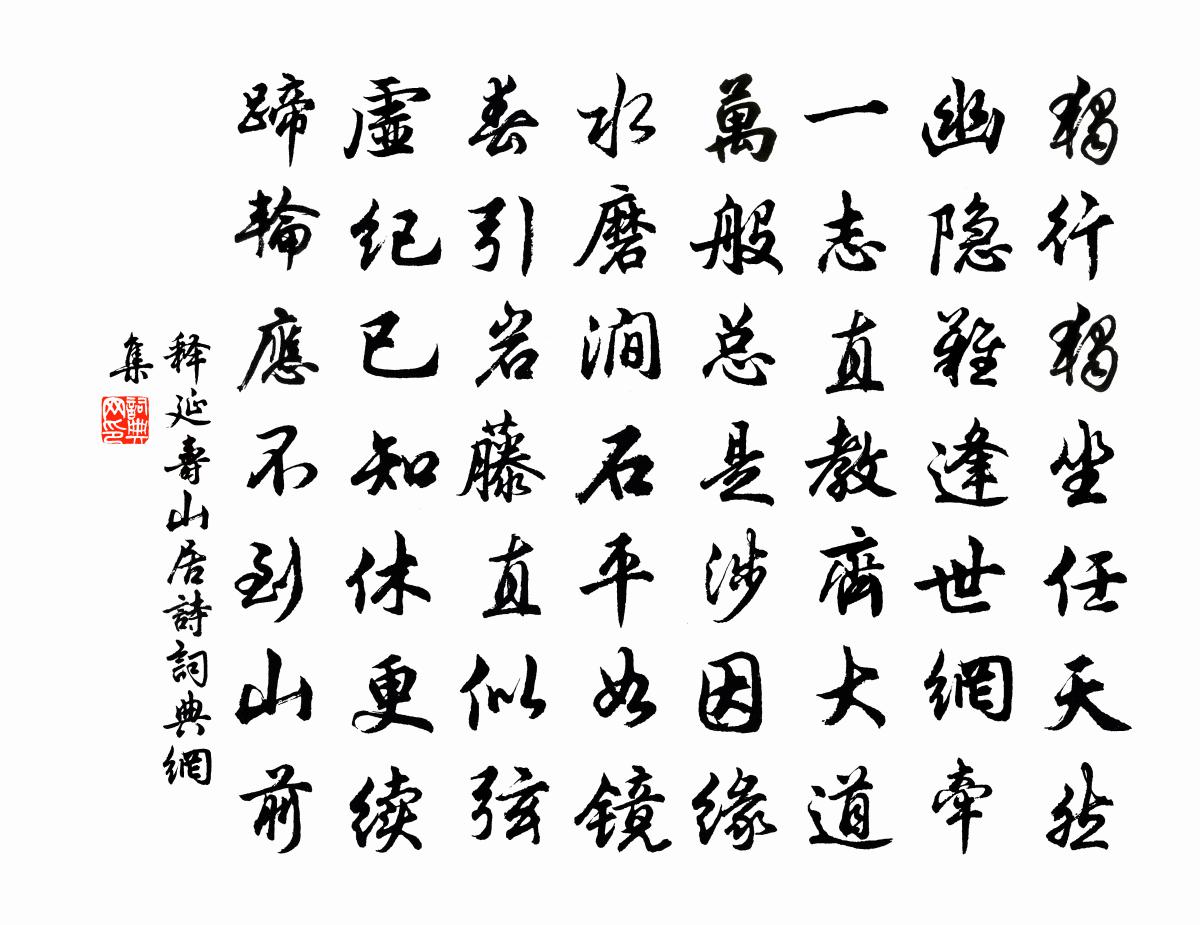 獨行獨坐任天然
幽隐難逢世網牽
一志直教齊大道
萬般总是涉因緣
水磨澗石平如镜
春引岩藤直似弦
虛纪已知休更续
蹄輪應不到山前
释延壽山居詩詞典網
集
詞典
网印